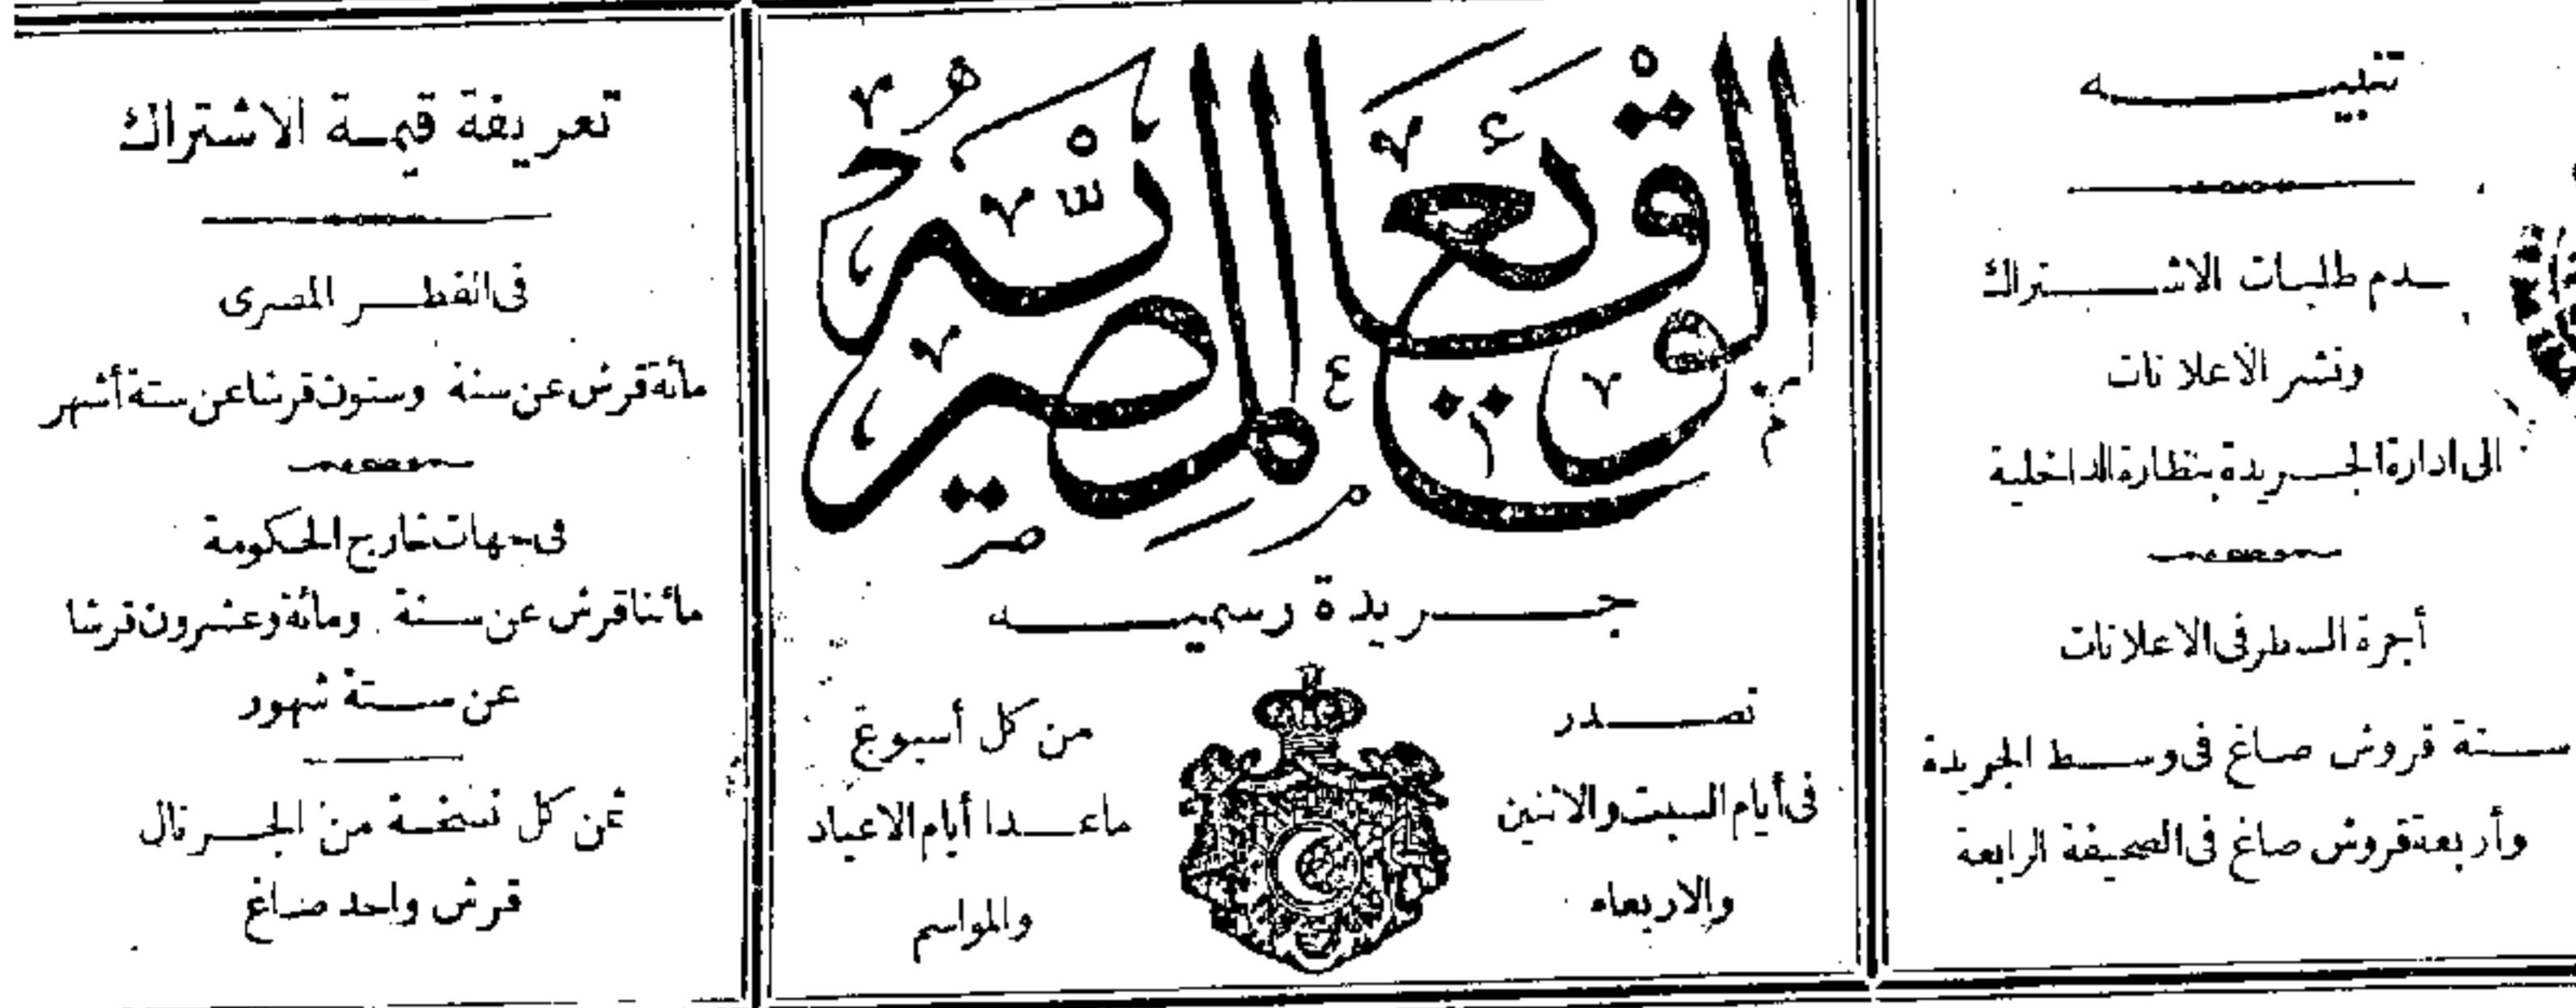 تنبيه
طلبات الاشتراك
ونشر الاعلانات
الى ادارة الجريدة بنظارة الداخلية
أجرة السطر فى الاعلانات
ستة قروش صاغ فى وسط الجريدة
وأربعة قروش صاغ فى الصحيفة الرابعة
الوقائع المصرية
جريدة رسميه
تصدر
فى أيام السبت والاثنين
والاربعاء
من كل أسبوع
ماعدا أيام الاعياد
والمواسم
تعريفة قيمة الاشتراك
فى القطر المصرى
مائة قرش عن سنة وستون قرشا عن ستة أشهر
فى جهات خارج الحكومة
مائتا قرش عن سنة ومائة وعشرون قرشا
عن ستة شهور
ثمن كل نسخة من الجرنال
قرش واحد صاغ